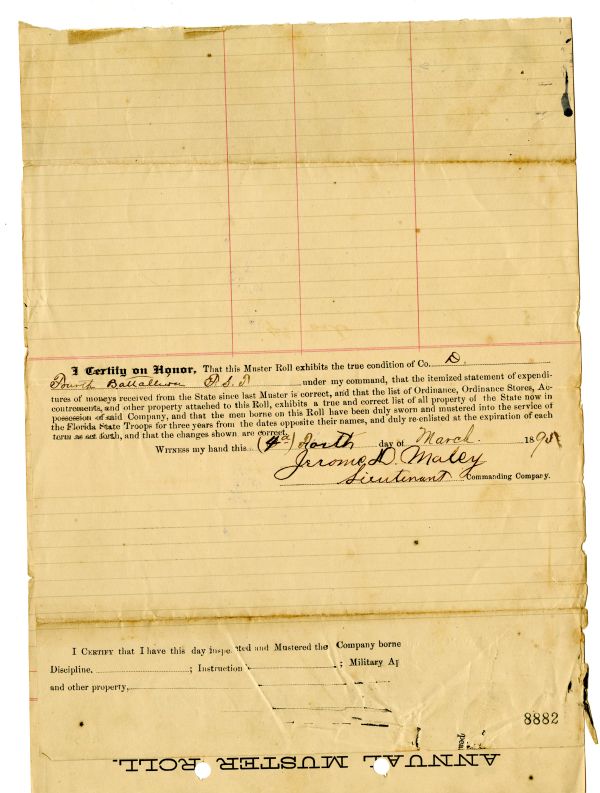 I Certify on Honor, That this Muster Roll exhibits the true condition of Co. D.
Fourth Battallion F. S. T. under my command, that the itemized statement of expendi-
tures of moneys received from the State since last Muster is correct, and that the list of Ordinance, Ordinance Stores, Ac-
contrements, and other property attached to this Roll, exhibits a true and correct list of all property of the State now in
possession of said Company, and that the men borne on this Roll have been duly sworn and mustered into the service of
the Florida State Troops for three years from the dates opposite their names, and duly re-enlisted at the expiration of each
term as set forth, and that the changes shown are correct.
WITNESS my hand this day of March. 18
Jerome D. Maley
Lieutenant Commanding Company.
I CERTIFY that I have this day inspected and Mustered the Company borne
Discipline, ; Instruction ; Military Ap
and other property,
8882
ANNUAL MUSTER ROLL.